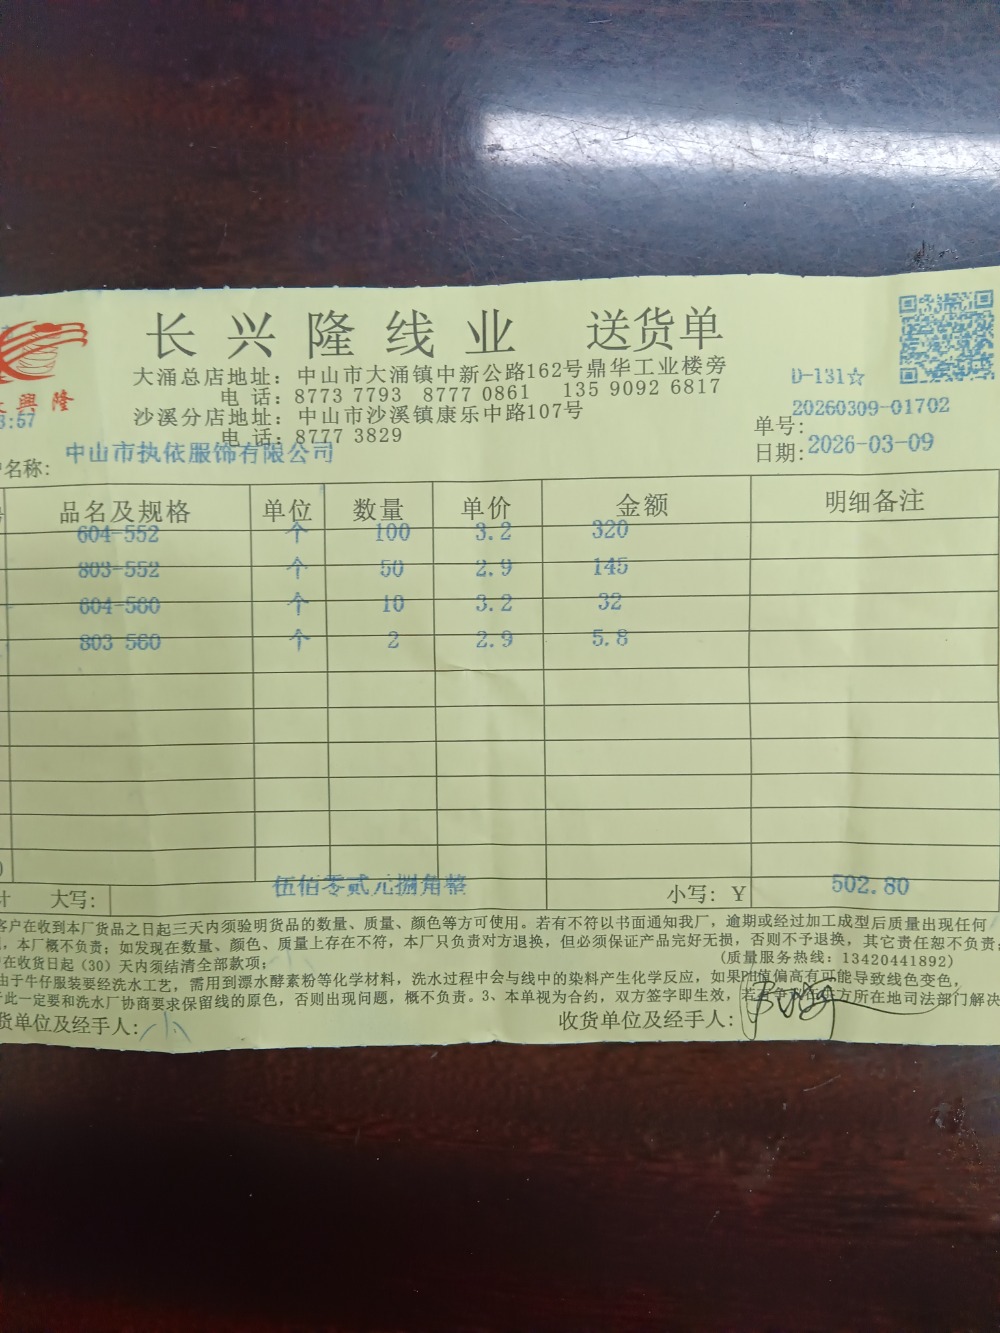 长兴隆线业 送货单
興隆
大涌总店地址：中山市大涌镇中新公路162号鼎华工业楼旁
电 话：8773 7793 8777 0861 135 9092 6817
沙溪分店地址：中山市沙溪镇康乐中路107号
电 话：8777 3829
D-131☆
3:57
单号：20260309-01702
日期：2026-03-09
名称：中山市执依服饰有限公司
品名及规格 单位 数量 单价 金额 明细备注
604-552 个 100 3.2 320
803-552 个 50 2.9 145
604-560 个 10 3.2 32
803 560 个 2 2.9 5.8
计 大写：伍佰零贰元捌角整 小写：Y 502.80
客户在收到本厂货品之日起三天内须验明货品的数量、质量、颜色等方可使用。若有不符以书面通知我厂，逾期或经过加工成型后质量出现任何
，本厂概不负责；如发现在数量、颜色、质量上存在不符，本厂只负责对方退换，但必须保证产品完好无损，否则不予退换，其它责任恕不负责；
在收货日起（30）天内须结清全部款项；
(质量服务热线：13420441892)
由于牛仔服装要经洗水工艺，需用到漂水酵素粉等化学材料，洗水过程中会与线中的染料产生化学反应，如果PH值偏高有可能导致线色变色，
此一定要和洗水厂协商要求保留线的原色，否则出现问题，概不负责。3、本单视为合约，双方签字即生效，若有争议在 方所在地司法部门解决
货单位及经手人：小 收货单位及经手人：